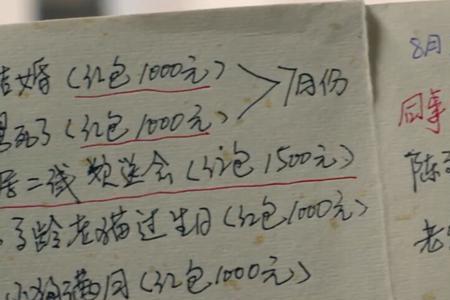 结婚（红包1000元）
死了（红包1000元）
7月份
二战颁奖会（红包1500元）
高龄老猫过生日（红包1000元）
满月（红包1000元）
8月
同事
陈
老